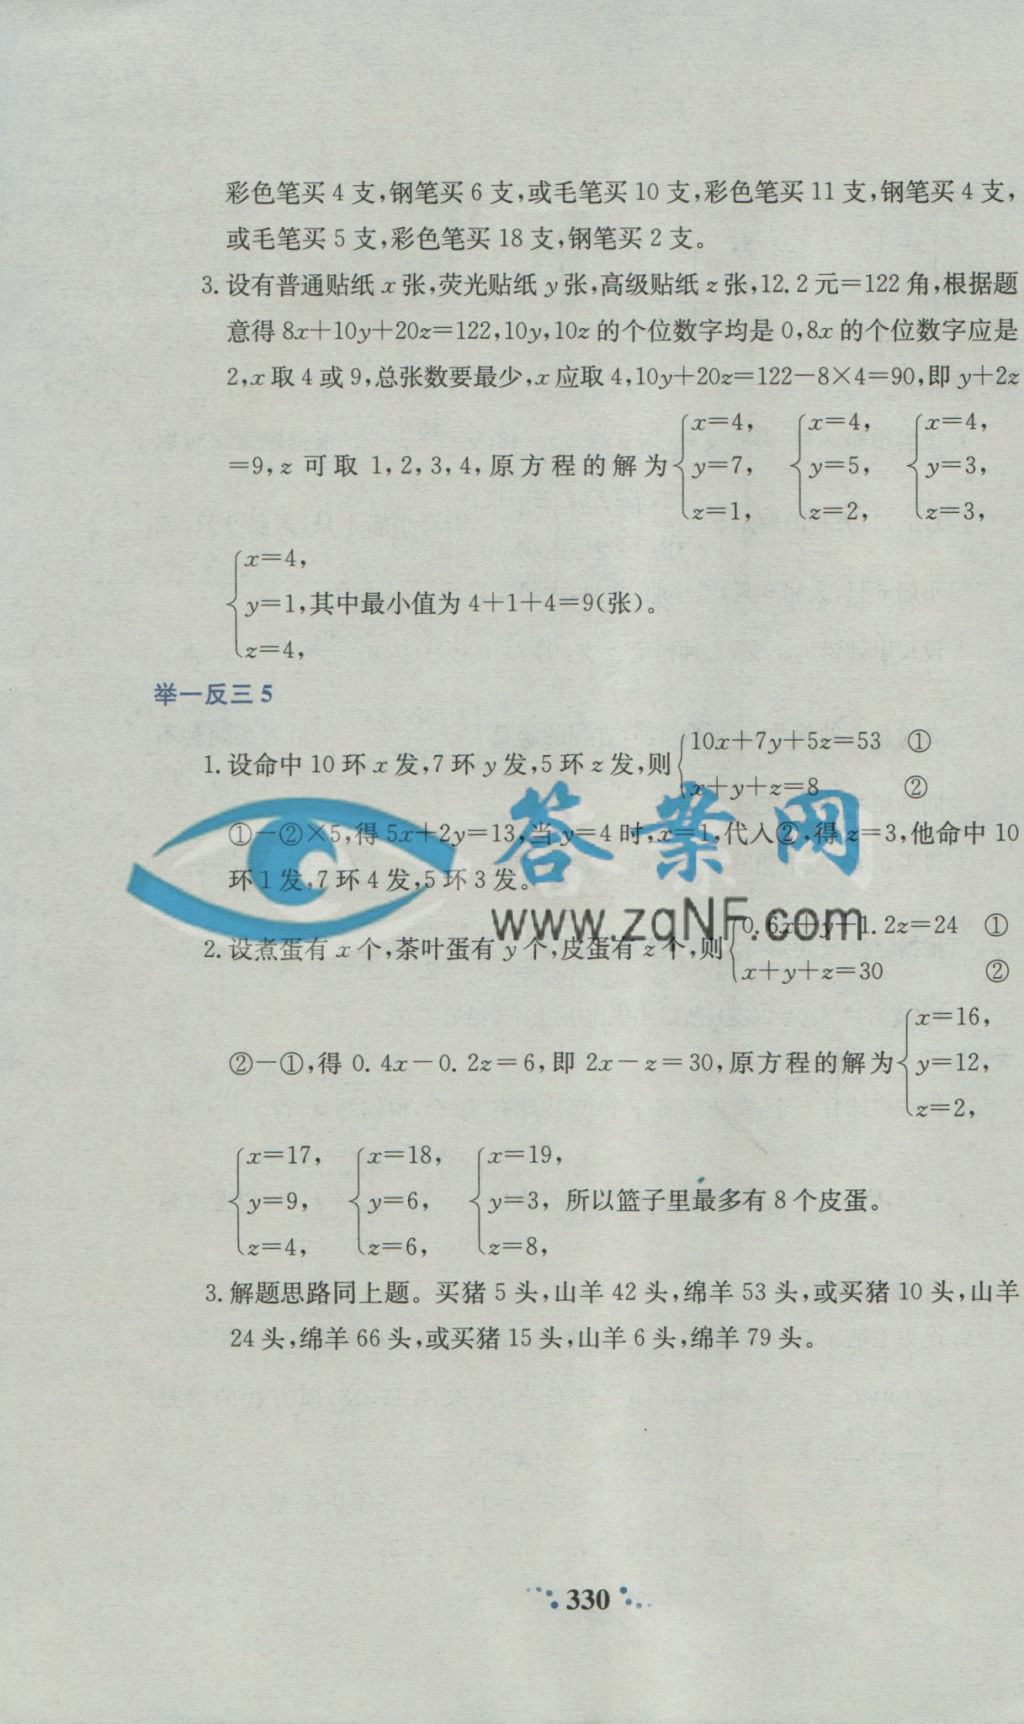 彩色笔买 4 支,钢笔买 6 支,或毛笔买 10 支,彩色笔买 11 支,钢笔买 4 支,
或毛笔买 5 支,彩色笔买 18 支,钢笔买 2 支。
3. 设有普通贴纸 x 张,荧光贴纸 y 张,高级贴纸 z 张,12.2 元=122 角,根据题
意得 8x+10y+20z=122,10y,10z 的个位数字均是 0,8x 的个位数字应是
2,x 取 4 或 9,总张数要最少,x 应取 4,10y+20z=122-8×4=90,即 y+2z
x=4, x=4, x=4,
=9,z 可取 1,2,3,4,原方程的解为 y=7, y=5, y=3,
z=1, z=2, z=3,
x=4,
y=1,其中最小值为 4+1+4=9(张)。
z=4,
举一反三 5
10x+7y+5z=53 ①
1. 设命中 10 环 x 发,7 环 y 发,5 环 z 发,则
x+y+z=8 ②
①-②×5,得 5x+2y=13,当 y=4 时,x=1,代入②,得 z=3,他命中 10
环 1 发,7 环 4 发,5 环 3 发。
答案网
www.zqNF.com
0.6x+y+1.2z=24 ①
2. 设煮蛋有 x 个,茶叶蛋有 y 个,皮蛋有 z 个,则
x+y+z=30 ②
x=16,
②-①,得 0.4x-0.2z=6,即 2x-z=30,原方程的解为 y=12,
z=2,
x=17, x=18, x=19,
y=9, y=6, y=3, 所以篮子里最多有 8 个皮蛋。
z=4, z=6, z=8,
3. 解题思路同上题。买猪 5 头,山羊 42 头,绵羊 53 头,或买猪 10 头,山羊
24 头,绵羊 66 头,或买猪 15 头,山羊 6 头,绵羊 79 头。
330